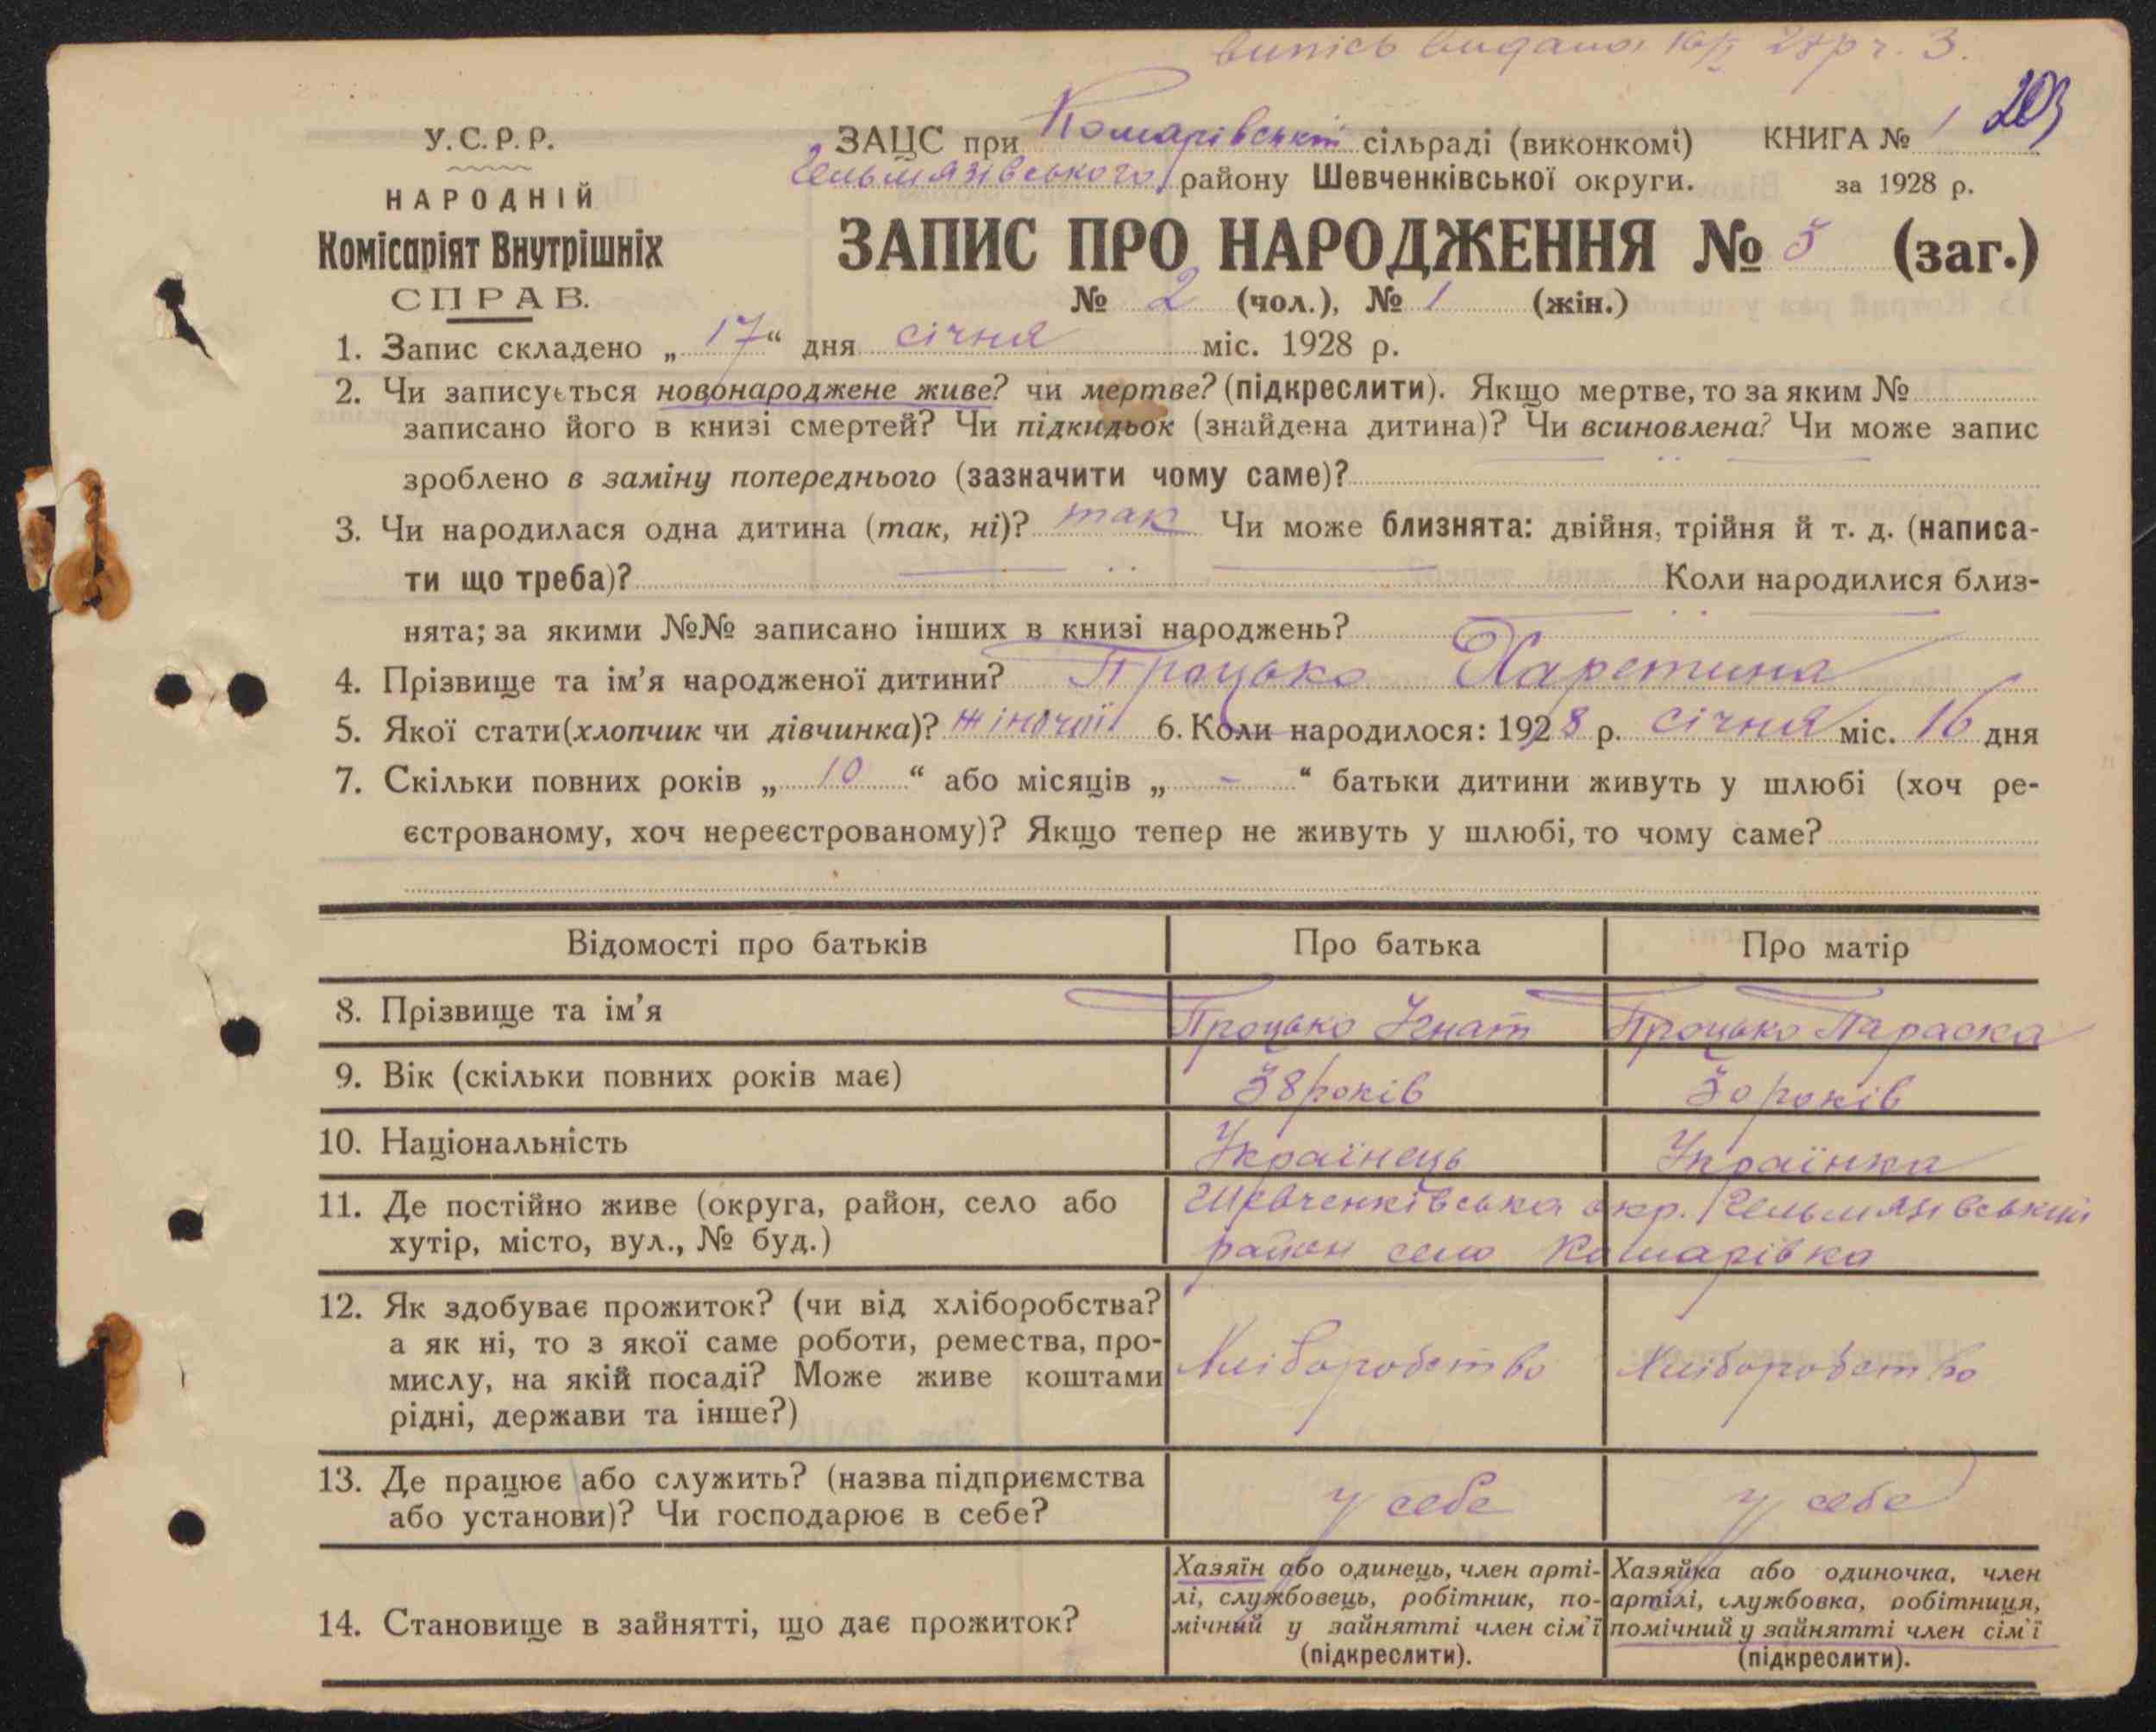 випісь видана 16/I 28 р ч. 3.
203
У.С.Р.Р.
НАРОДНІЙ
Комісаріят Внутрішніх
СПРАВ.
ЗАЦС при Комарівській сільраді (виконкомі) КНИГА № 1
Гельмязівського району Шевченківської округи. за 1928 р.
ЗАПИС ПРО НАРОДЖЕННЯ № 3 (заг.)
№ 2 (чол.), № 1 (жін.)
1. Запис складено „ 17 “ дня січня міс. 1928 р.
2. Чи записується новонароджене живе? чи мертве? (підкреслити). Якщо мертве, то за яким №
записано його в книзі смертей? Чи підкидьок (знайдена дитина)? Чи всиновлена? Чи може запис
зроблено в заміну попереднього (зазначити чому саме)?
3. Чи народилася одна дитина (так, ні)? так Чи може близнята: двійня, трійня й т. д. (написа-
ти що треба)? Коли народилися близ-
нята; за якими №№ записано інших в книзі народжень?
4. Прізвище та ім’я народженої дитини? Процько Харетина
5. Якої стати (хлопчик чи дівчинка)? жіночої 6. Коли народилося: 1928 р. січня міс. 16 дня
7. Скільки повних років „ 10 “ або місяців „ - “ батьки дитини живуть у шлюбі (хоч ре-
єстрованому, хоч нереєстрованому)? Якщо тепер не живуть у шлюбі, то чому саме?
Відомості про батьків Про батька Про матір
8. Прізвище та ім’я Процько Ігнат Процько Параска
9. Вік (скільки повних років має) 38 років 30 років
10. Національність Українець Українка
11. Де постійно живе (округа, район, село або Шевченківська окр. Гельмязівський
хутір, місто, вул., № буд.) район село Комарівка
12. Як здобуває прожиток? (чи від хліборобства?
а як ні, то з якої саме роботи, ремества, про-
мислу, на якій посаді? Може живе коштами Хліборобство Хліборобство
рідні, держави та інше?)
13. Де працює або служить? (назва підприємства
або установи)? Чи господарює в себе? у себе у себе
14. Становище в зайнятті, що дає прожиток?
Хазяїн або одинець, член арті-
лі, службовець, робітник, по-
мічний у зайнятті член сім’ї
(підкреслити).
Хазяйка або одиночка, член
артілі, службовка, робітниця,
помічний у зайнятті член сім’ї
(підкреслити).